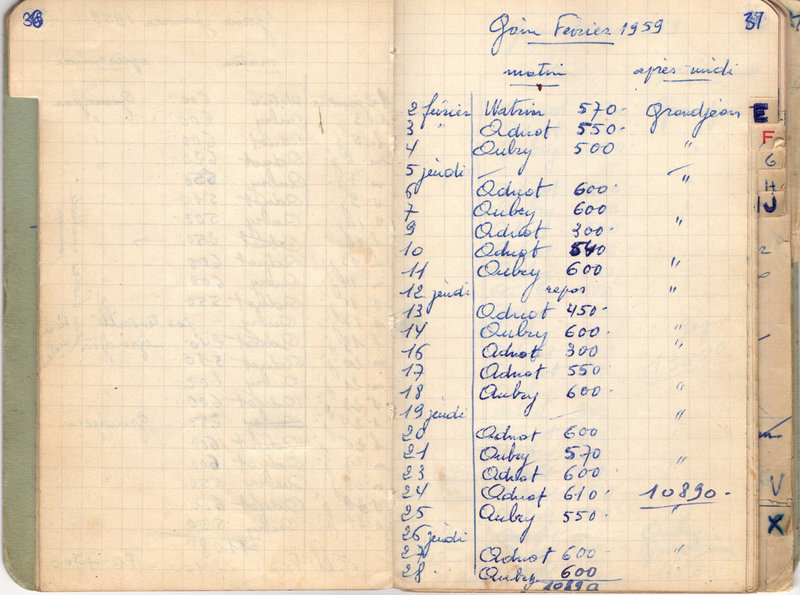 36
37
Gain Février 1959
matin après-midi
2 février Watrin 570 - Grandjean
3 " Adnot 550 -
4 Aubry 500 "
5 jeudi — "
6 Adnot 600 -
7 Aubry 600
9 Adnot 300 - "
10 Adnot 540
11 Aubry 600 "
12 jeudi repos "
13 Adnot 450 -
14 Aubry 600 - "
16 Adnot 300 "
17 Adnot 550
18 Aubry 600 - "
19 jeudi — "
20 Adnot 600
21 Aubry 570 "
23 Adnot 600
24 Adnot 610 - 10890 -
25 Aubry 550 - "
26 jeudi
27 Adnot 600 - "
28 Aubry 600
10890
E
F
G
H
IJ
V
X